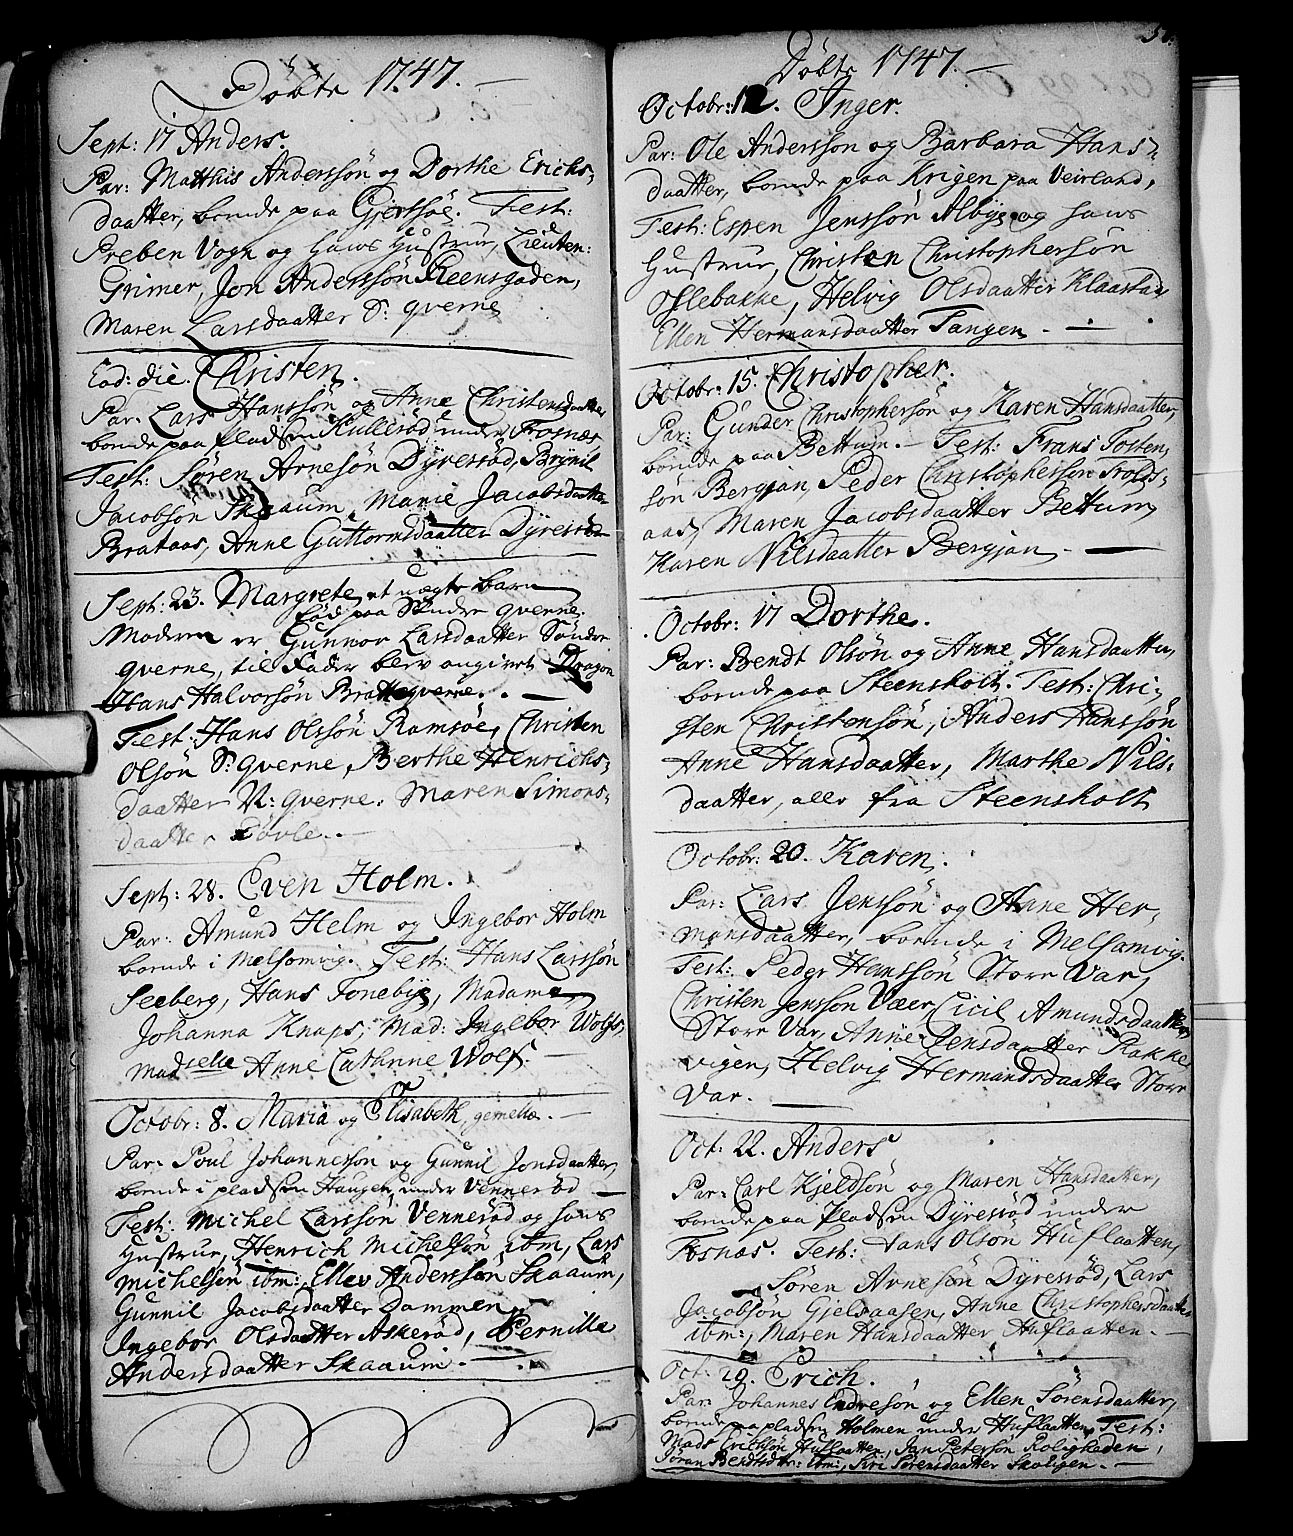 Döbte 1747.
Sept: 17 Anders.
Par: Matthis Anderssön og Dorthe Erichs-
daatter, boende paa Gjertsöe. Test:
Preben Vogn og hans Hustrue, Lieuten:
Grimer, Jon Anderssön Steensgaden,
Maren Larsdaatter S: qverne
Eod: die. Christen.
Par: Lars Hanssön og Anne Christensdaatter
boende paa pladsen Kulleröd under Fosnæs
Test: Sören Arnesön Dyresröd, Brynil
Jacobsön Skaaum, Marie Jacobsdaatter
Brataas, Anne Guttormsdaatter Dyresröd
Sept: 23. Margrete, et uægte barn
föd paa Söndre qverne.
Moderen er Gunnor Larsdaatter Söndre
qverne, til Fader blev angivet Dragon
Hans Halvorsön Brattqverne.
Test: Hans Olssön Ramsöe, Christen
Olsön S: qverne, Berthe Henrichs-
daatter N: qverne. Maren Simons-
daatter Bövle.
Sept: 28. Even Holm.
Par: Amund Helm og Ingebor Holm
boende i Melsomvig. Test: Hans Larssön
Seeberg, Hans Fonebye, Madame
Johanna Knaps, Mad: Ingebor Wolfs,
Madselle Anne Cathrine Wolf.
Octobr: 8. Maria og Elisabeth, gemellæ.
Par: Poul Johannessön og Gunnil Jonsdaatter,
boende i pladsen Haugen under Venneröd
Test: Michel Larssön Venneröd og hans
Hustrue, Henrich Michelsön ibm, Lars
Michelsön ibm: Ellev Anderssön Skaaum,
Gunnil Jacobsdaatter Dammen,
Ingebor Olsdaatter Askeröd, Pernille
Andersdaatter Skaaum.
Döbte 1747.
Octobr: 12. Inger.
Par: Ole Anderssön og Barbara Hans-
daatter, boende paa Krigen paa Veierland,
Test: Espen Jenssön Albye og hans
Hustrue, Christen Christophersön
Oslebakke, Helvig Olsdaatter Klaastad,
Ellen Hermansdaatter Tangen.
Octobr: 15. Christopher.
Par: Gunder Christophersön og Karen Hansdaatter,
boende paa Bettum. Test: Frans Tosten-
sön Bergjan, Peder Christophersön Trolds-
aas, Maren Jacobsdaatter Bettum,
Karen Nilsdaatter Bergjan,
Octobr: 17 Dorthe.
Par: Bendt Olsön og Anne Hansdaatter,
boende paa Steensholt. Test: Chri-
sten Christensön, Anders Hanssön
Anne Hansdaatter, Marthe Nils-
daatter, alle fra Steensholt
Octobr: 20. Karen.
Par: Lars Jenssön og Anne Her-
mansdaatter, boende i Melsomvig.
Test: Peder Hanssön Store Vær,
Christen Jenssön Væer, Cicil Amundsdaatter
Store Vær, Anne Jensdaatter Rakke
vigen, Helvig Hermandsdaatter Store
Vær.
Oct: 22. Anders
Par: Carl Kjeldsön og Maren Hansdaatter,
boende paa Pladsen Dyresröd under
Fosnæs. Test: Hans Olsön Huflaatten,
Sören Arnesön Dyresröd, Lars
Jacobsön Gjelsaasen, Anne Christophersdaatter
ibm:, Maren Hansdaatter Huflaatten.
Oct: 29. Erich.
Par: Johannes Endresön og Ellen Sörensdaatter,
boende paa pladsen Holmen under Huflaatten, Test:
Mads Erichsön Huflaatten, Jan Petersön Roligheden,
Jöran Bendtsdtr: ibm:, Siri Sörensdaatter Skoligen.